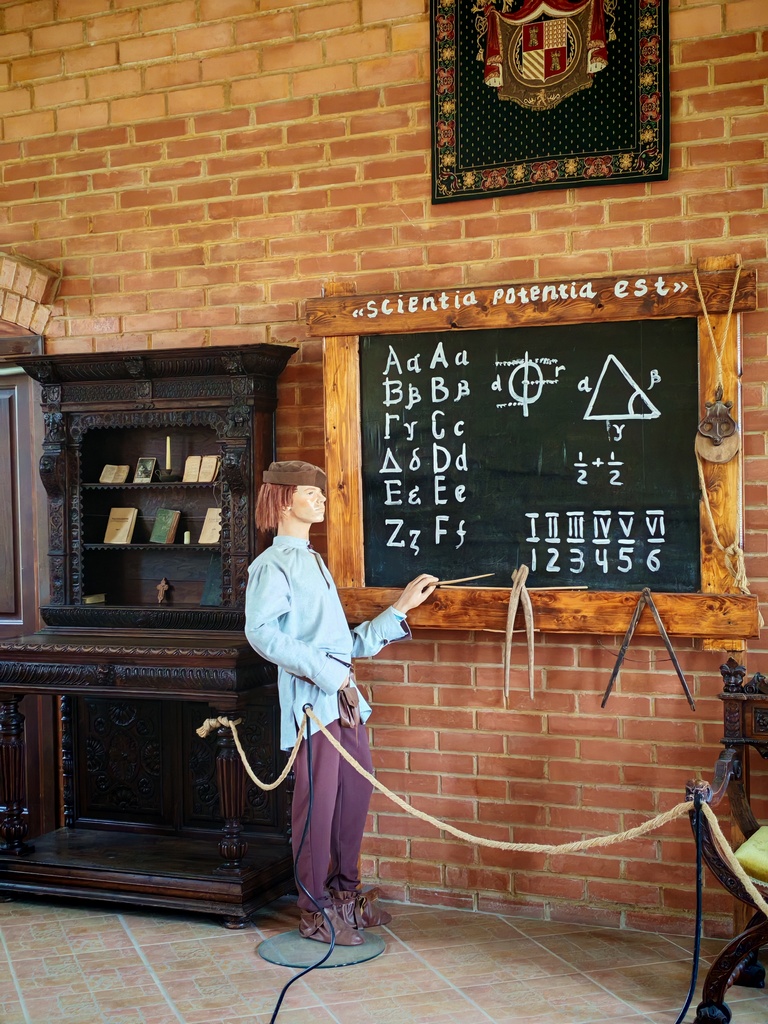 «scientia potentia est»
Αα Aa
Ββ Bβ
Γγ Cc
Δδ Dd
Εε Ee
Ζζ Ff
d r
α β
γ
1/2 + 1/2
I II III IV V VI
1 2 3 4 5 6